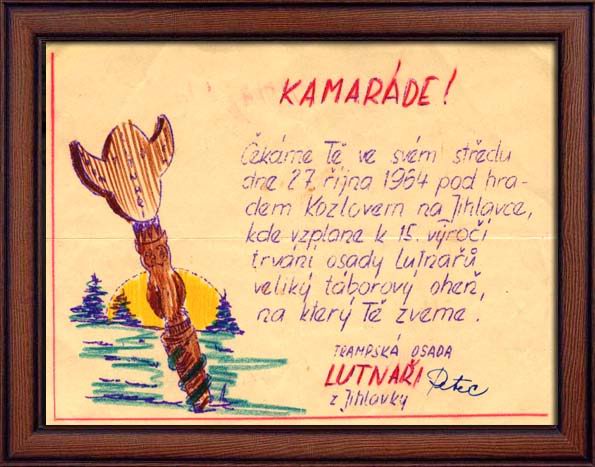 KAMARÁDE!
Čekáme Tě ve svém středu
dne 27. října 1964 pod hra-
dem Kozlovem na Jihlavce,
kde vzplane k 15. výročí
trvání osady Lutnařů
veliký táborový oheň,
na který Tě zveme.
TRAMPSKÁ OSADA
LUTNAŘI
z Jihlavky